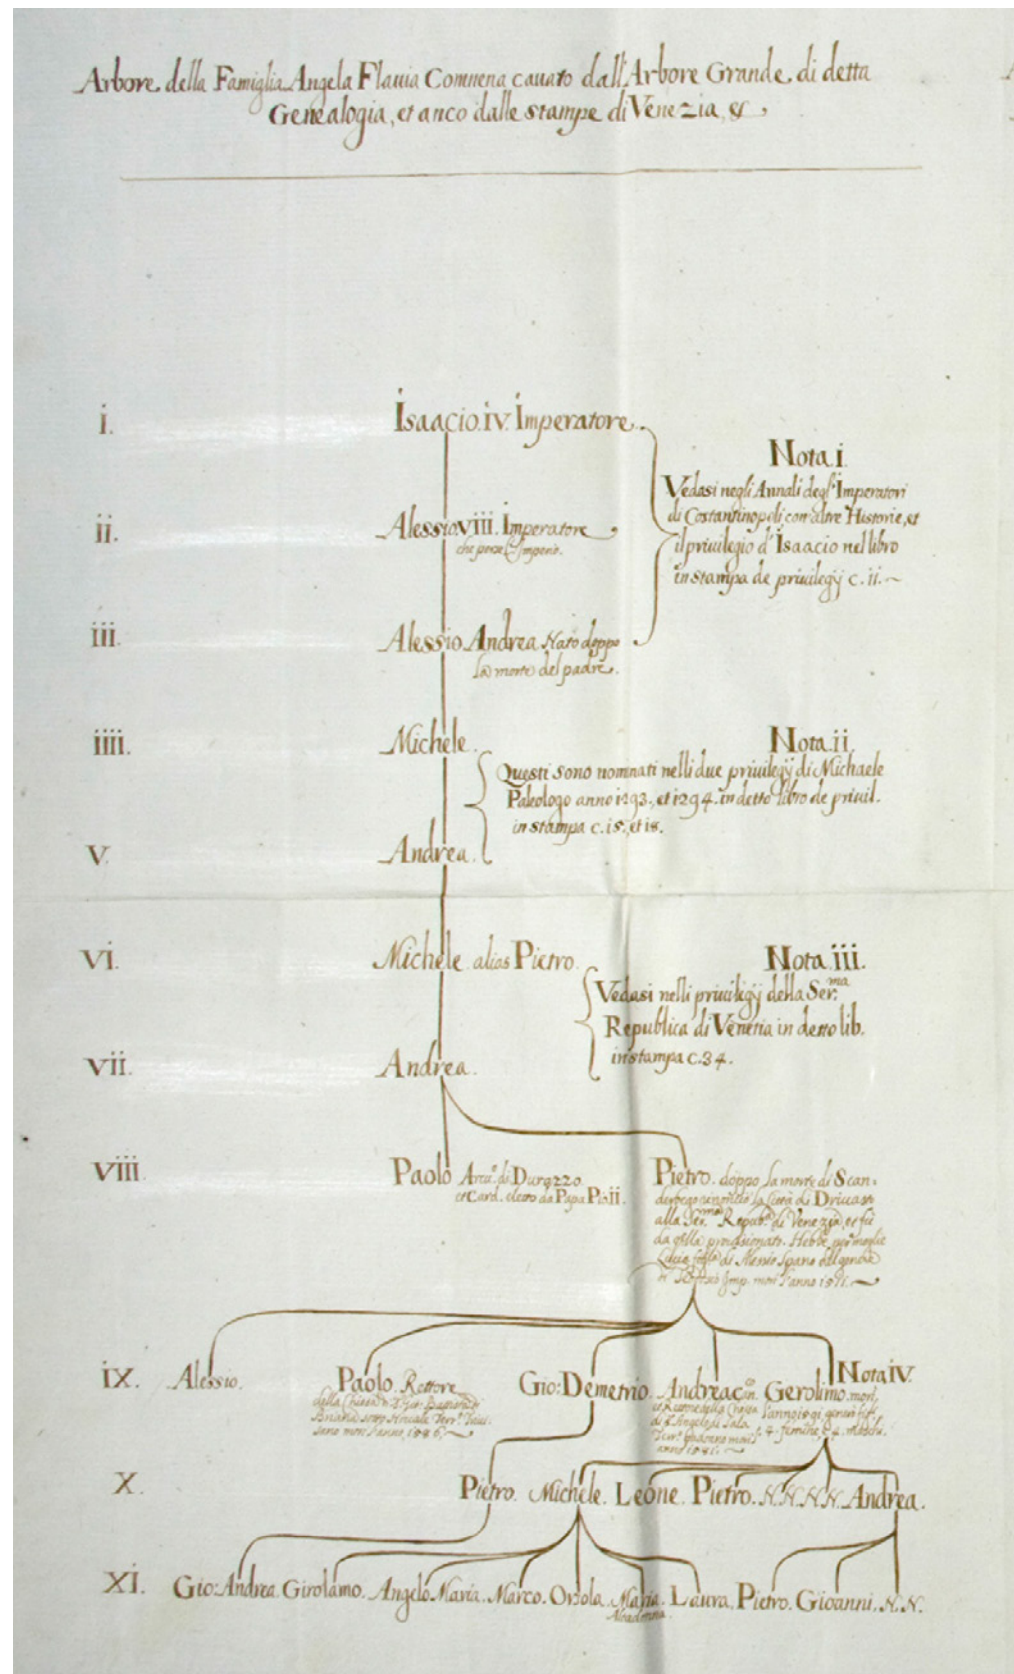 Arbore della Famiglia Angela Flavia Comnena cavato dall'Arbore Grande di detta
Genealogia, et anco dalle stampe di Venezia, &
i. Isaacio. iv. Imperatore.
Nota i.
Vedasi negli Annali degl'Imperatori
di Costantinopoli con altre Historie, et
il privilegio d'Isaacio nel libro
in stampa de privilegij c. ii.
ii. Alessio. viii. Imperatore
che perse l'Imperio.
iii. Alessio Andrea Nato doppo
la morte del padre.
iiii. Michele.
Nota ii.
Questi sono nominati nelli due privilegij di Michaele
Paleologo anno 1293., et 1294. in detto libro de privil.
in stampa c. 15., et 18.
V. Andrea.
vi. Michele alias Pietro.
Nota iii.
Vedasi nelli privilegij della Ser.ma
Republica di Venetia in detto lib.
in stampa c. 34.
vii. Andrea.
viii. Paolo Arcu.o di Durazzo
et Card. eletto da Papa Pio ii.
Pietro. doppo la morte di Scan=
derbego la Città di Drivasto
alla Ser.ma Repub.a di Venezia, et fù
da q̃lla provisionato. Hebbe per moglie
Lucia di Alessio Spano
Imp. morì l'anno
ix. Alessio. Paolo. Rettore Gio: Demetrio. Andrea Gerolimo. morì
Nota iv.
della Chiesa di S. Gio: Battista di
Briana
morì l'anno
della Chiesa
di S. Angelo di Sala
Terr.o Padoano morì
l'anno 1591
4. femine, et 4. maschi.
X. Pietro. Michele. Leone. Pietro. N. N. N. N. Andrea.
XI. Gio: Andrea. Girolamo. Angelo Maria. Marco. Orsola. Maria Laura. Pietro. Gioanni. N. N.